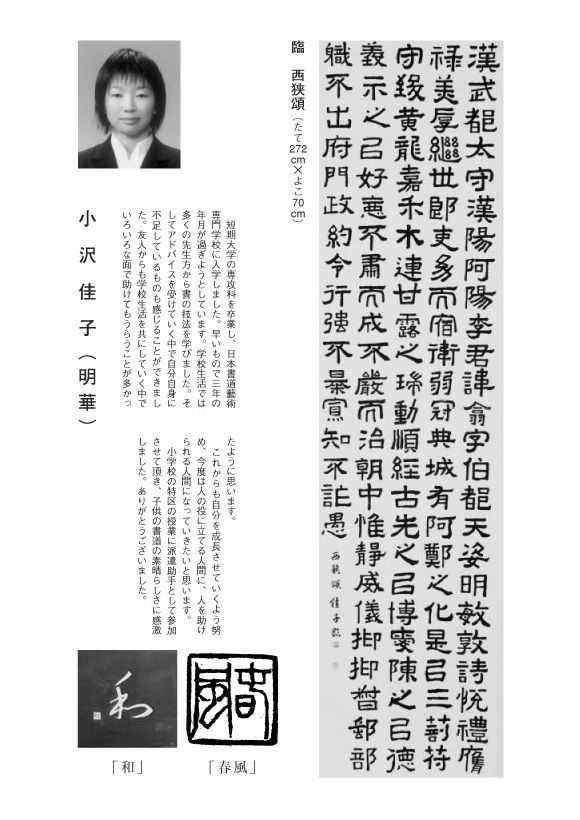 漢武都太守漢陽阿陽李君諱翕字伯都天姿明敏敦詩悅禮膺
禄美厚繼世郎吏幼而宿衛弱冠典城有阿鄭之化是以三剖符
守致黄龍嘉禾木連甘露之瑞動順經古先之以博愛陳之以德
義示之以好惡不肅而成不嚴而治朝中惟静威儀抑抑督郵部
職不出府門政約令行強不暴寡知不詐愚
西狭頌 佳子臨
臨　西狭頌（たて272cm×よこ70cm）
　短期大学の専攻科を卒業し、日本書道藝術
専門学校に入学しました。早いもので三年の
年月が過ぎようとしています。学校生活では
多くの先生方から書の技法を学びました。そ
してアドバイスを受けていく中で自分自身に
不足しているものも感じることができまし
た。友人からも学校生活を共にしていく中で
いろいろな面で助けてもうらうことが多かっ
たように思います。
　これからも自分を成長させていくよう努
め、今度は人の役に立てる人間に、人を助け
られる人間になっていきたいと思います。
　小学校の特区の授業に派遣助手として参加
させて頂き、子供の書道の素晴らしさに感激
しました。ありがとうございました。
小沢佳子（明華）
春風
「春風」
和
「和」